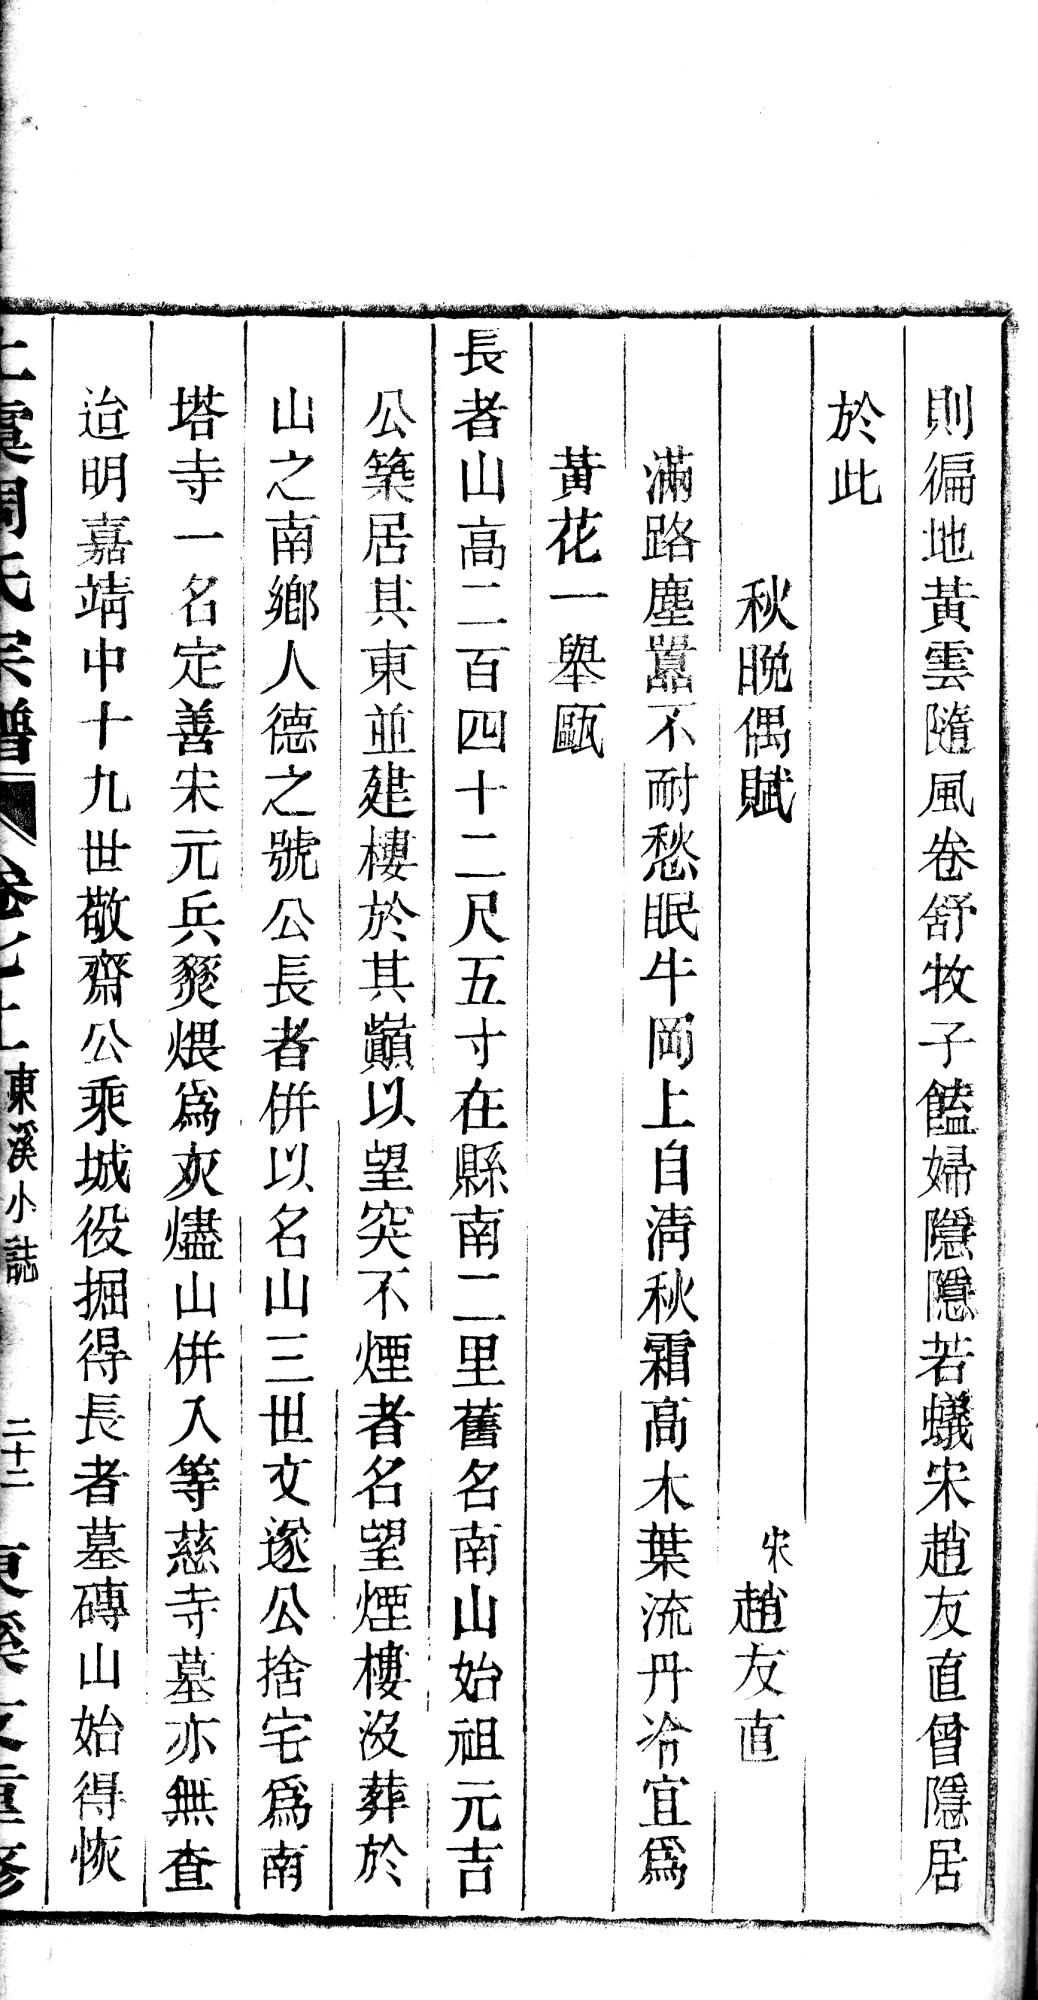 則徧地黃雲隨風卷舒牧子饁婦隱隱若蟻宋趙友直曾隱居
於此
秋晩偶賦　宋趙友直
滿路塵囂不耐愁眠牛岡上自淸秋霜高木葉流丹冷宜爲
黃花一舉甌
長者山高二百四十二尺五寸在縣南二里舊名南山始祖元吉
公築居其東並建樓於其巓以望突不煙者名望煙樓沒葬於
山之南鄉人德之號公長者併以名山三世文遂公捨宅爲南
塔寺一名定善宋元兵燹煨爲灰燼山併入等慈寺墓亦無查
迨明嘉靖中十九世敬齋公乘城役掘得長者墓磚山始得恢
上虞周氏宗譜　卷七上　東溪小誌　二十二　東溪支重修